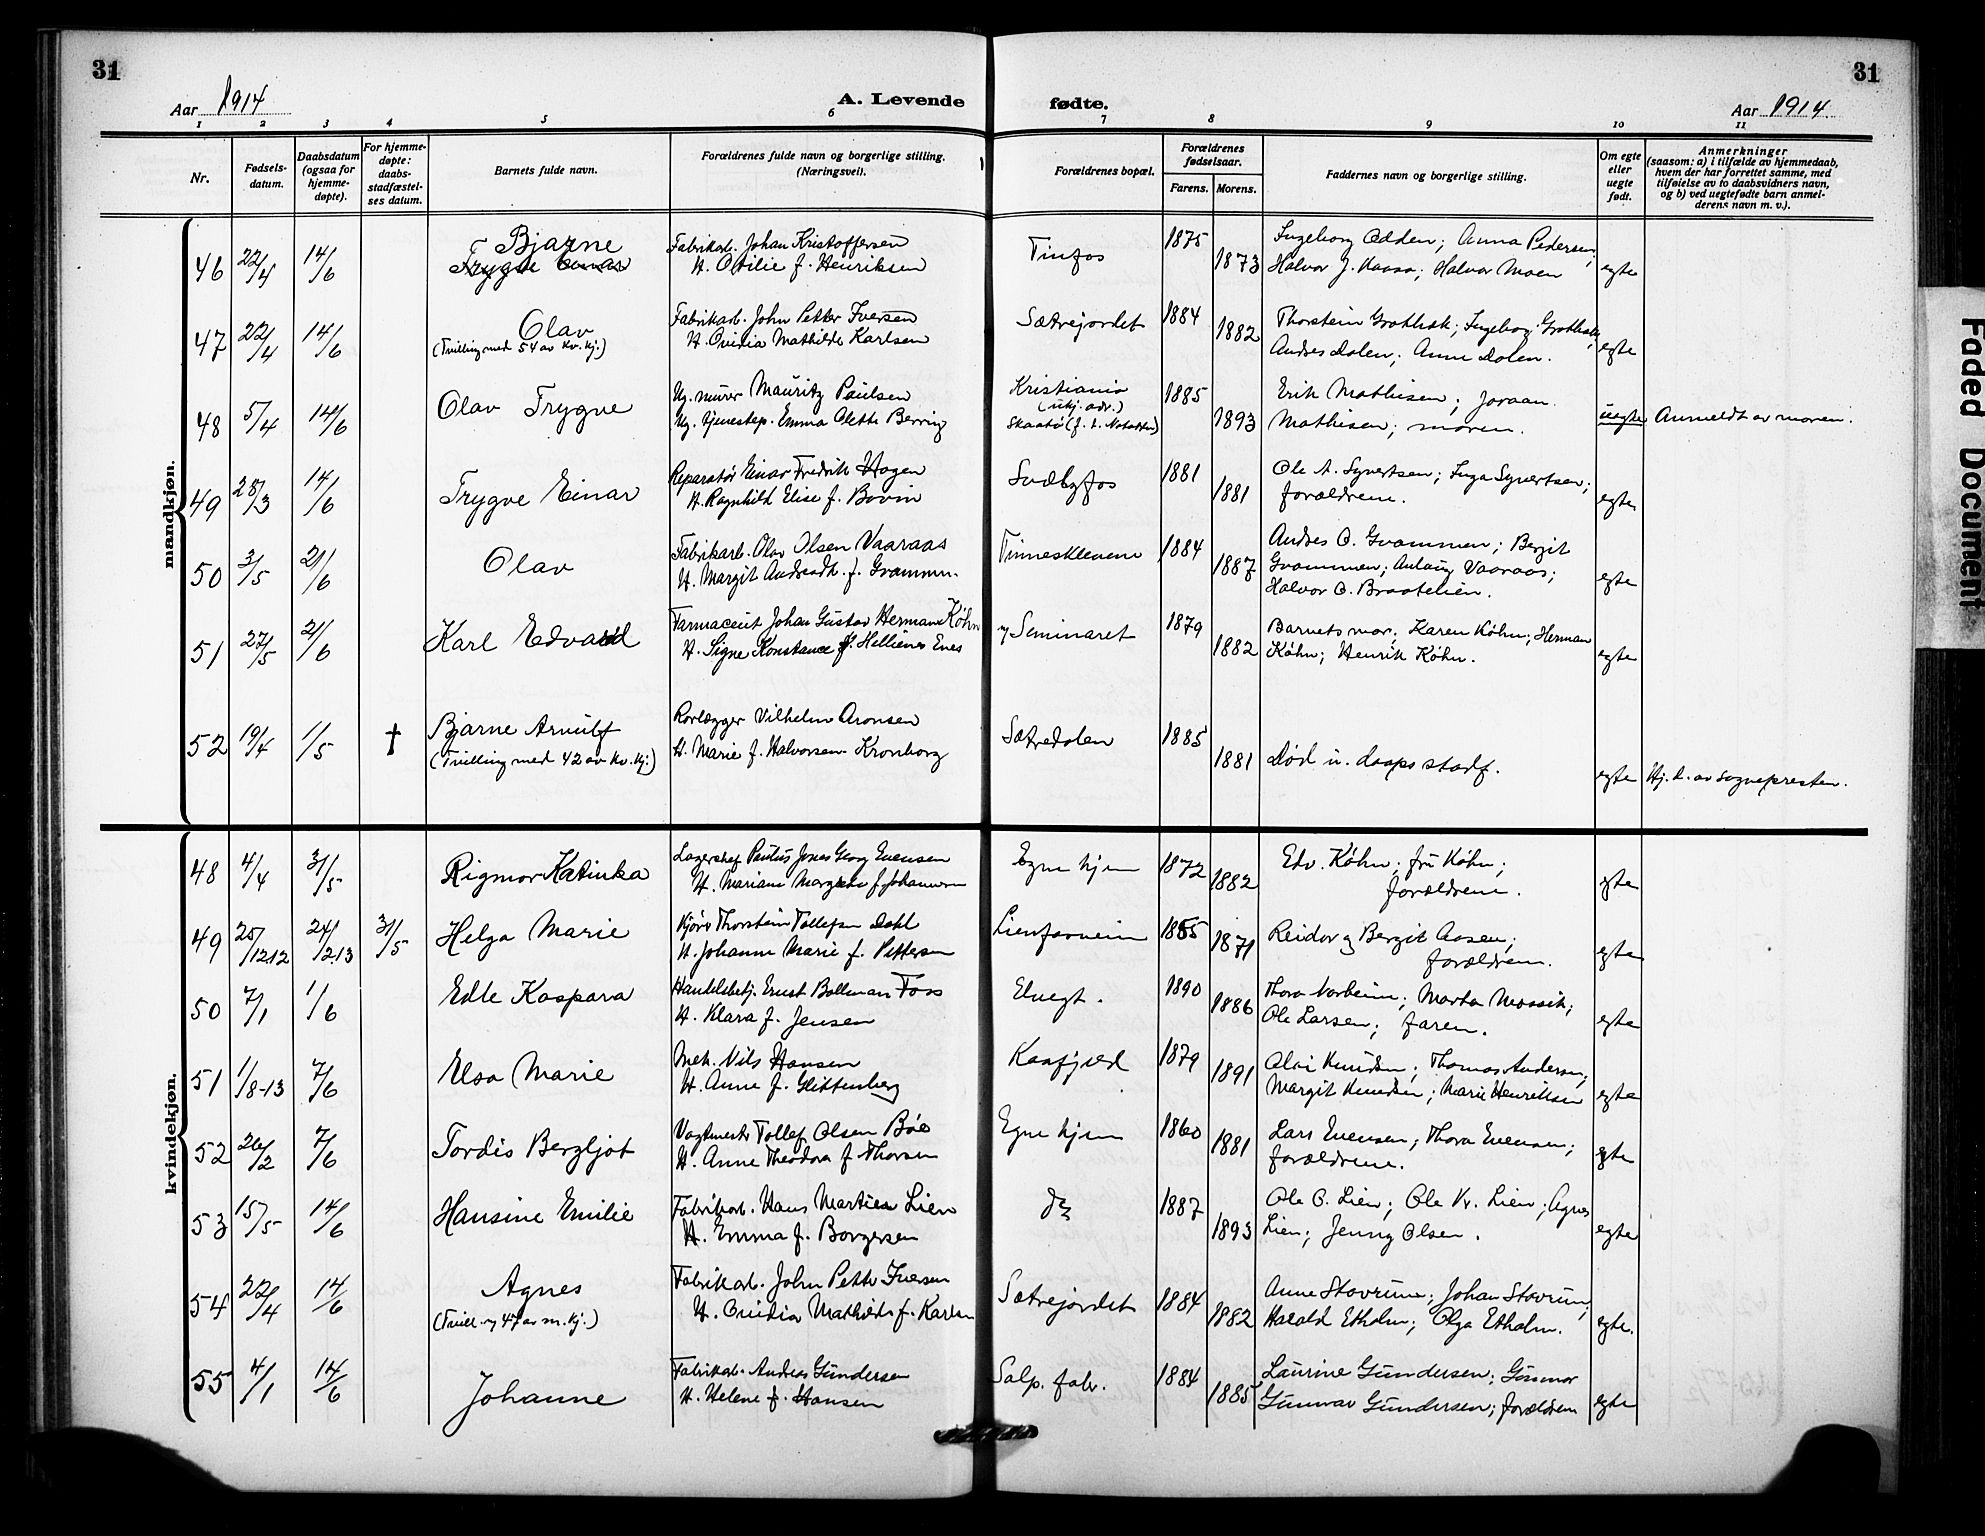 31
31
Aar 1914
A. Levende fødte.
Aar 1914.
1 2 3 4 5 6 7 8 9 10 11
Nr.
Fødsels-
datum.
Daabsdatum
(ogsaa for
hjemme-
døpte).
For hjemme-
døpte:
daabs-
stadfæstel-
ses datum.
Barnets fulde navn.
Forældrenes fulde navn og borgerlige stilling.
(Næringsvei).
Forældrenes bopæl.
Forældrenes
fødselsaar.
Farens. Morens.
Faddernes navn og borgerlige stilling.
Om egte
eller
uegte
født.
Anmerkninger
(saasom: a) i tilfælde av hjemmedaab,
hvem der har forrettet samme, med
tilføielse av to daabsvidners navn,
og b) ved uegtefødte barn anmel-
derens navn m. v.).
mandkjøn.
46 22/4 14/6
Bjarne
Trygve Einar
Fabrikarb. Johan Kristoffersen
H. Otilie f. Henriksen
Tinfos
1875 1873
Ingeborg Odden; Anna Pedersen;
Halvor J. Kaasa; Halvor Moen
egte
47 22/4 14/6
Olav
(Tvilling med 54 av Kv. kj.)
Fabrikarb. John Petter Iversen
H. Ovidia Mathilde Karlsen
Sætrejordet
1884 1882
Thorstein Grotbæk; Ingeborg Grotbæk;
Andres Dalen; Anne Dalen.
egte
48 5/4 14/6
Olav Trygve
Ug. murer Mauritz Paulsen
Ug. tjenestep. Emma Olette Berring
Kristiania
(ukj. adr.)
Skaatø (f. t. Notodden)
1885 1893
Erik Mathisen; Joraan
Mathisen; moren.
uegte
Anmeldt av moren.
49 28/3 14/6
Trygve Einar
Reparatør Einar Fredrik Hagen
H. Ragnhild Elise f. Bovin
Svælgfos
1881 1881
Ole A. Syvertsen; Inga Syvertsen;
forældrene.
egte
50 3/5 21/6
Olav
Fabrikarb. Olav Olsen Vaaraas
H. Margit Andreadt. f. Gvammen.
Tinnesklevene
1884 1887
Andres O. Gvammen; Bergit
Gvammen; Aslaug Vaaraas;
Halvor O. Braatelien.
egte
51 27/5 21/6
Karl Edvard
Farmaceut Johan Gustav Herman Køhn
H. Signe Konstance f. Hellienes Enes
v/ Seminaret
1879 1882
Barnets mor; Karen Køhn; Herman
Køhn; Henrik Køhn.
egte
52 19/4 1/5 †
Bjarne Arnulf
(Tvilling med 42 av kv. kj.)
Rorlægger Vilhelm Aronsen
H. Marie f. Halvorsen Kronborg
Sætredalen
1885 1881
Død u. daaps stadf.
egte
Hj. d. av sognepresten.
kvindekjøn.
48 4/4 31/5
Rigmor Katinka
Lagerchef Paulus Jonas Georg Evensen
H. Mariane Margrete f. Johannesen
Egne hjem
1872 1882
Edv. Køhn; fru Køhn;
forældrene.
egte
49 25/1212 24/2.13 31/5
Helga Marie
Kjører Thorstein Tollefsen Dahl
H. Johanne Marie f. Pettersen
Lienfosveien
1865 1871
Reidar og Bergit Aasen;
forældrene.
egte
50 7/1 1/6
Edle Kaspara
Handelsbetj. Ernst Bollman Foss
H. Klara f. Jensen
Elvegt.
1890 1886
Thora Norheim; Marta Mossik;
Ole Larsen; faren.
egte
51 1/8-13 7/6
Elsa Marie
Mek. Nils Hansen
H. Anne f. Glittenberg
Kaafjeld
1879 1891
Olai Knudsen; Thomas Andersen;
Margit Knudsen; Marie Henriksen
egte
52 26/2 7/6
Tordis Bergljot
Vagtmester Tollef Olsen Bøe
H. Anne Theodora f. Thorsen
Egne hjem
1860 1881
Lars Evensen; Thora Evensen;
forældrene.
egte
53 15/5 14/6
Hansine Emilie
Fabrikarb. Hans Martin Lien
H. Emma f. Borgersen
do
1887 1893
Ole O. Lien; Ole Kr. Lien; Agnes
Lien; Jenny Olsen.
egte
54 22/4 14/6
Agnes
(Tvill. m 47 av m. kj.)
Fabrikarb. John Petter Iversen
H. Ovidia Mathilde f. Karlsen
Sætrejordet
1884 1882
Anne Stavrum; Johan Stavrum;
Harald Etholm; Olga Etholm.
egte.
55 4/1 14/6
Johanne
Fabrikarb. Andreas Gundersen
H. Helene f. Hansen
Salp. fabr.
1884 1885
Laurine Gundersen; Gunnar
Gunnar Gundersen; forældrene
egte
Faded Document